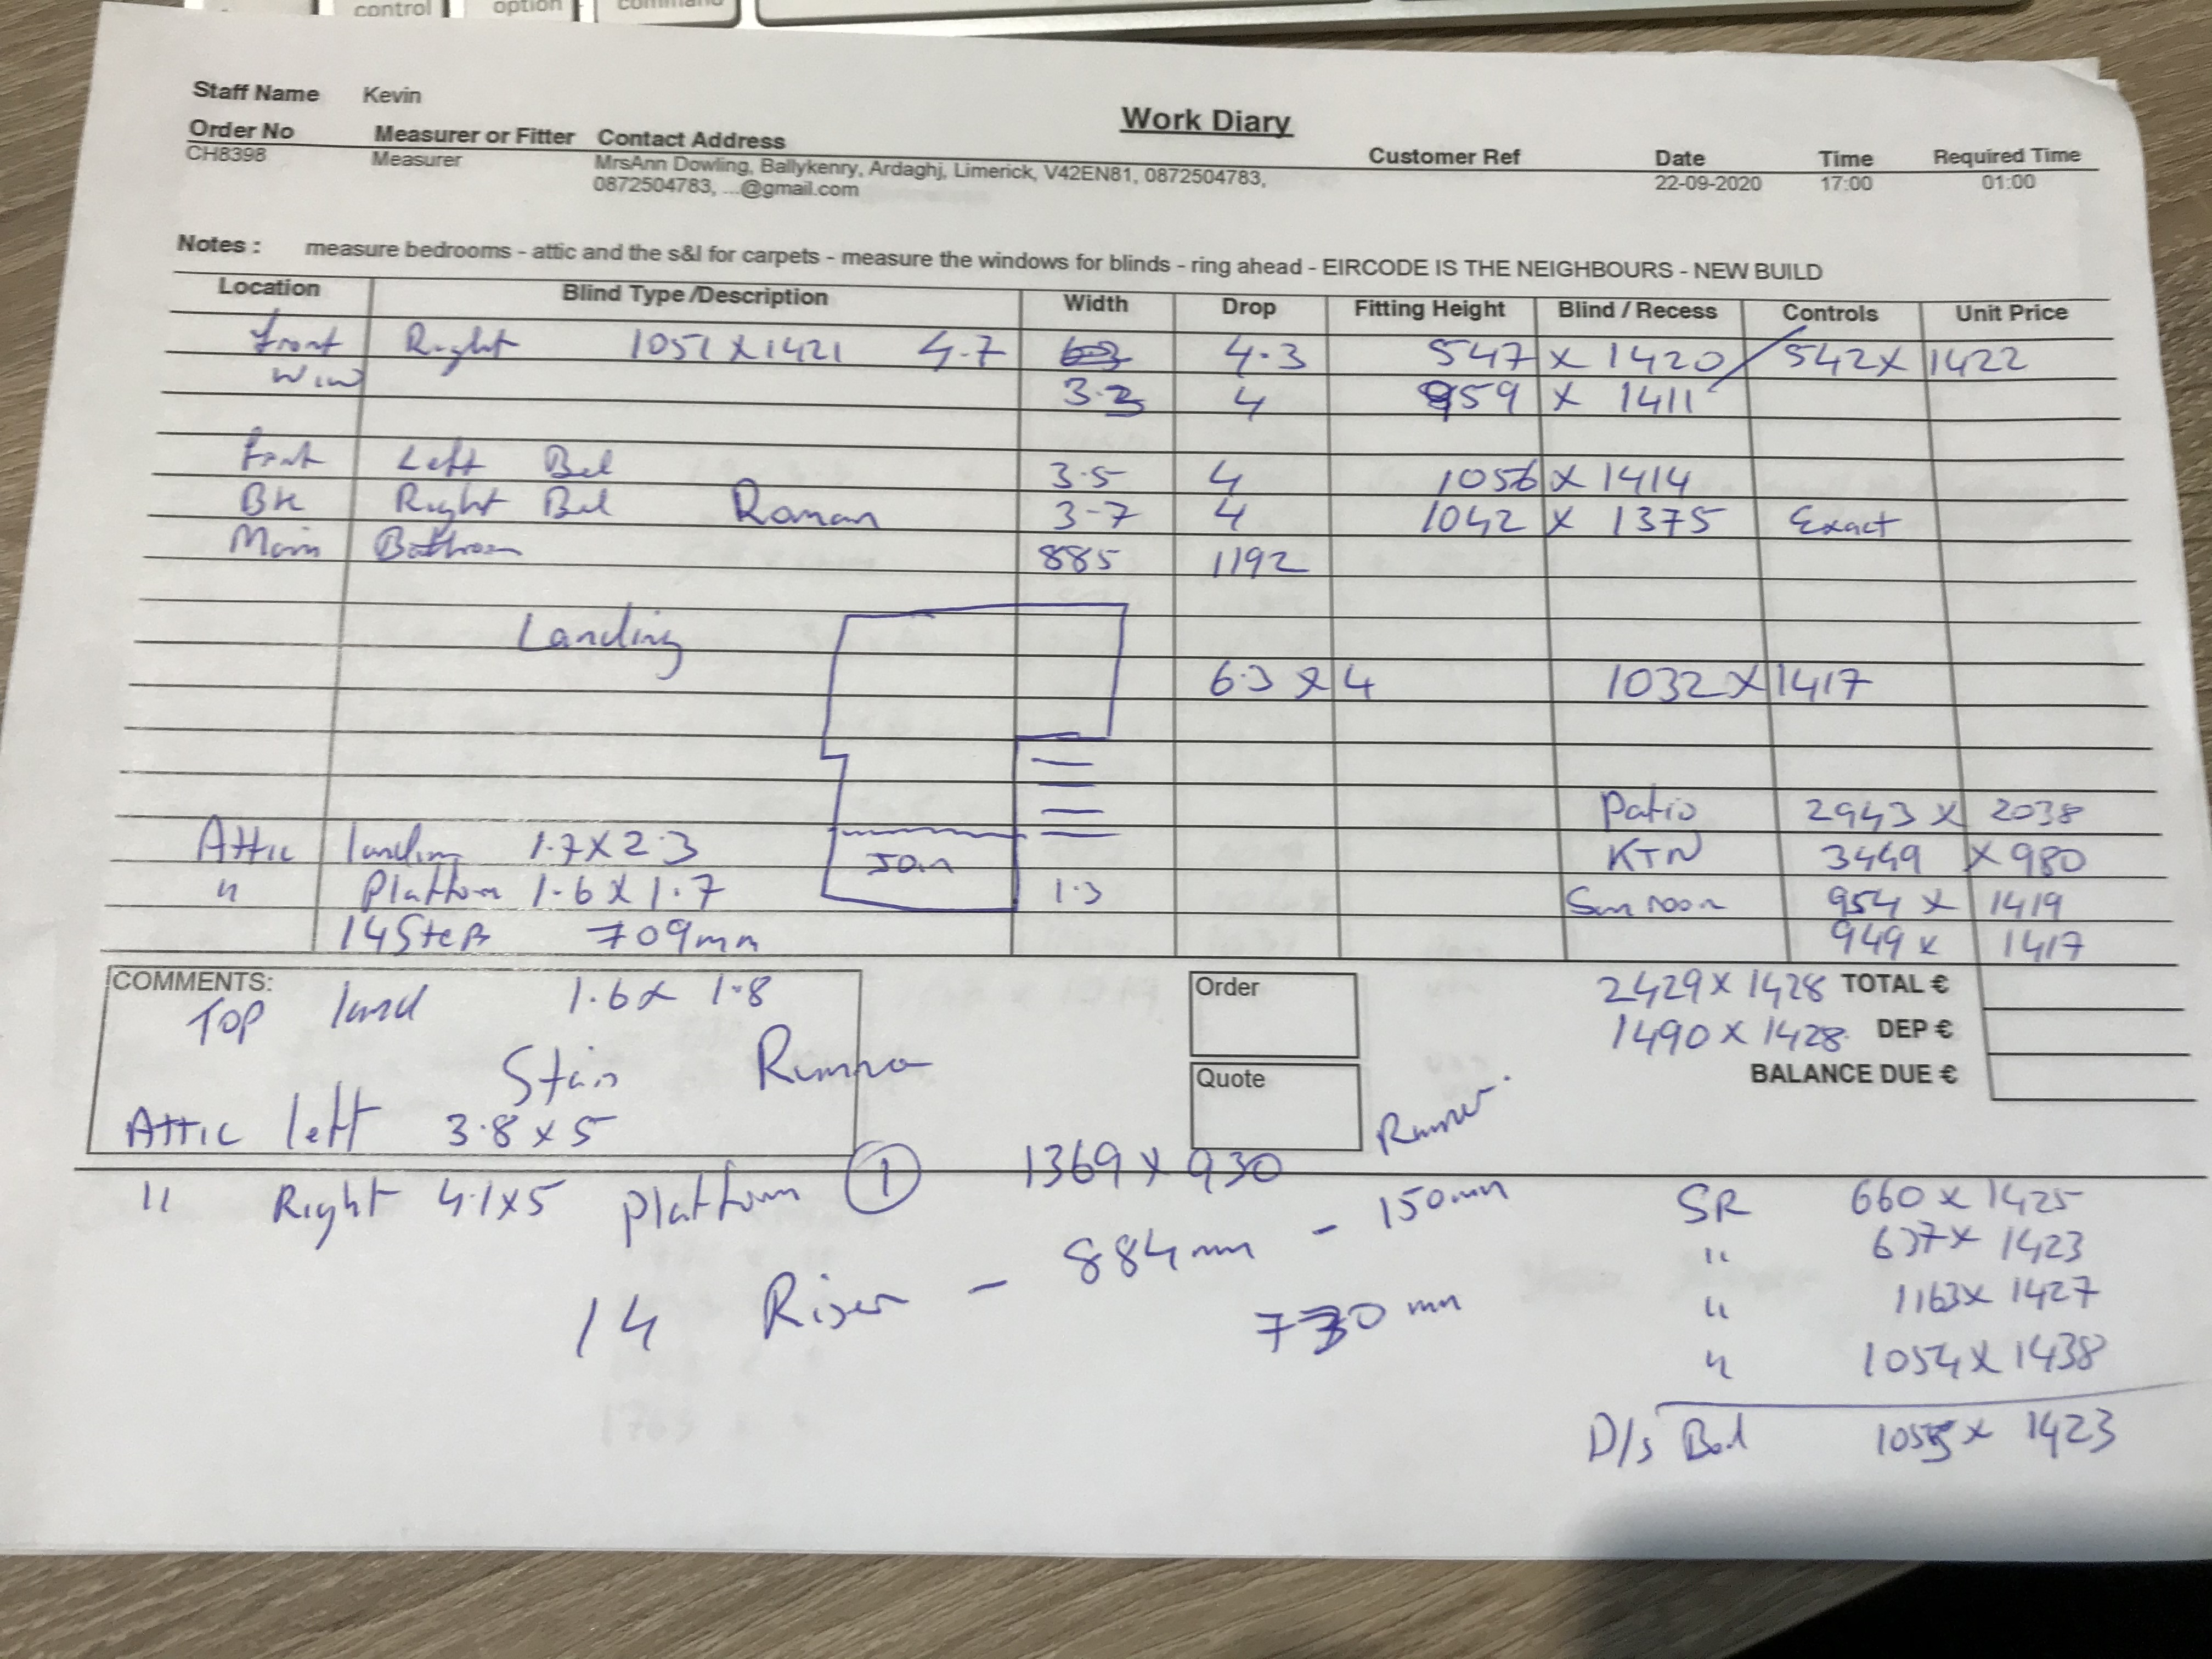 control option command
Staff Name Kevin
Work Diary
Order No Measurer or Fitter Contact Address Customer Ref Date Time Required Time
CH8398 Measurer MrsAnn Dowling, Ballykenry, Ardaghj, Limerick, V42EN81, 0872504783, 22-09-2020 17:00 01:00
0872504783, ...@gmail.com
Notes : measure bedrooms - attic and the s&l for carpets - measure the windows for blinds - ring ahead - EIRCODE IS THE NEIGHBOURS - NEW BUILD
Location Blind Type /Description Width Drop Fitting Height Blind / Recess Controls Unit Price
front Right 1051 X 1421 4.7 4.3 547 x 1420 / 542 x 1422
WIW 3.3 4 959 x 1411
Front Left Bed 3.5 4 1056 x 1414
BK Right Bed Roman 3-7 4 1042 x 1375 Exact
Main Bathroom 885 1192
Landing
6.3 x 4 1032 X 1417
Patio 2943 x 2038
Attic landing 1.7 X 2.3 KTN 3449 X 980
Join
" Platform 1.6 X 1.7 1.3 Sun room 954 x 1419
14 Steps 709mm 949 x 1417
COMMENTS: Order 2429 x 1428 TOTAL €
Top land 1.6 x 1.8
1490 x 1428 DEP €
Stair Runner Quote BALANCE DUE €
Attic left 3.8 x 5 Runner
" Right 4.1x5 platform 1 1369 x 930
SR 660 x 1425
14 Riser - 884mm - 150mm
" 637x 1423
730 mm
" 1163x 1427
" 1054 x 1438
D/s Bed 1055 x 1423